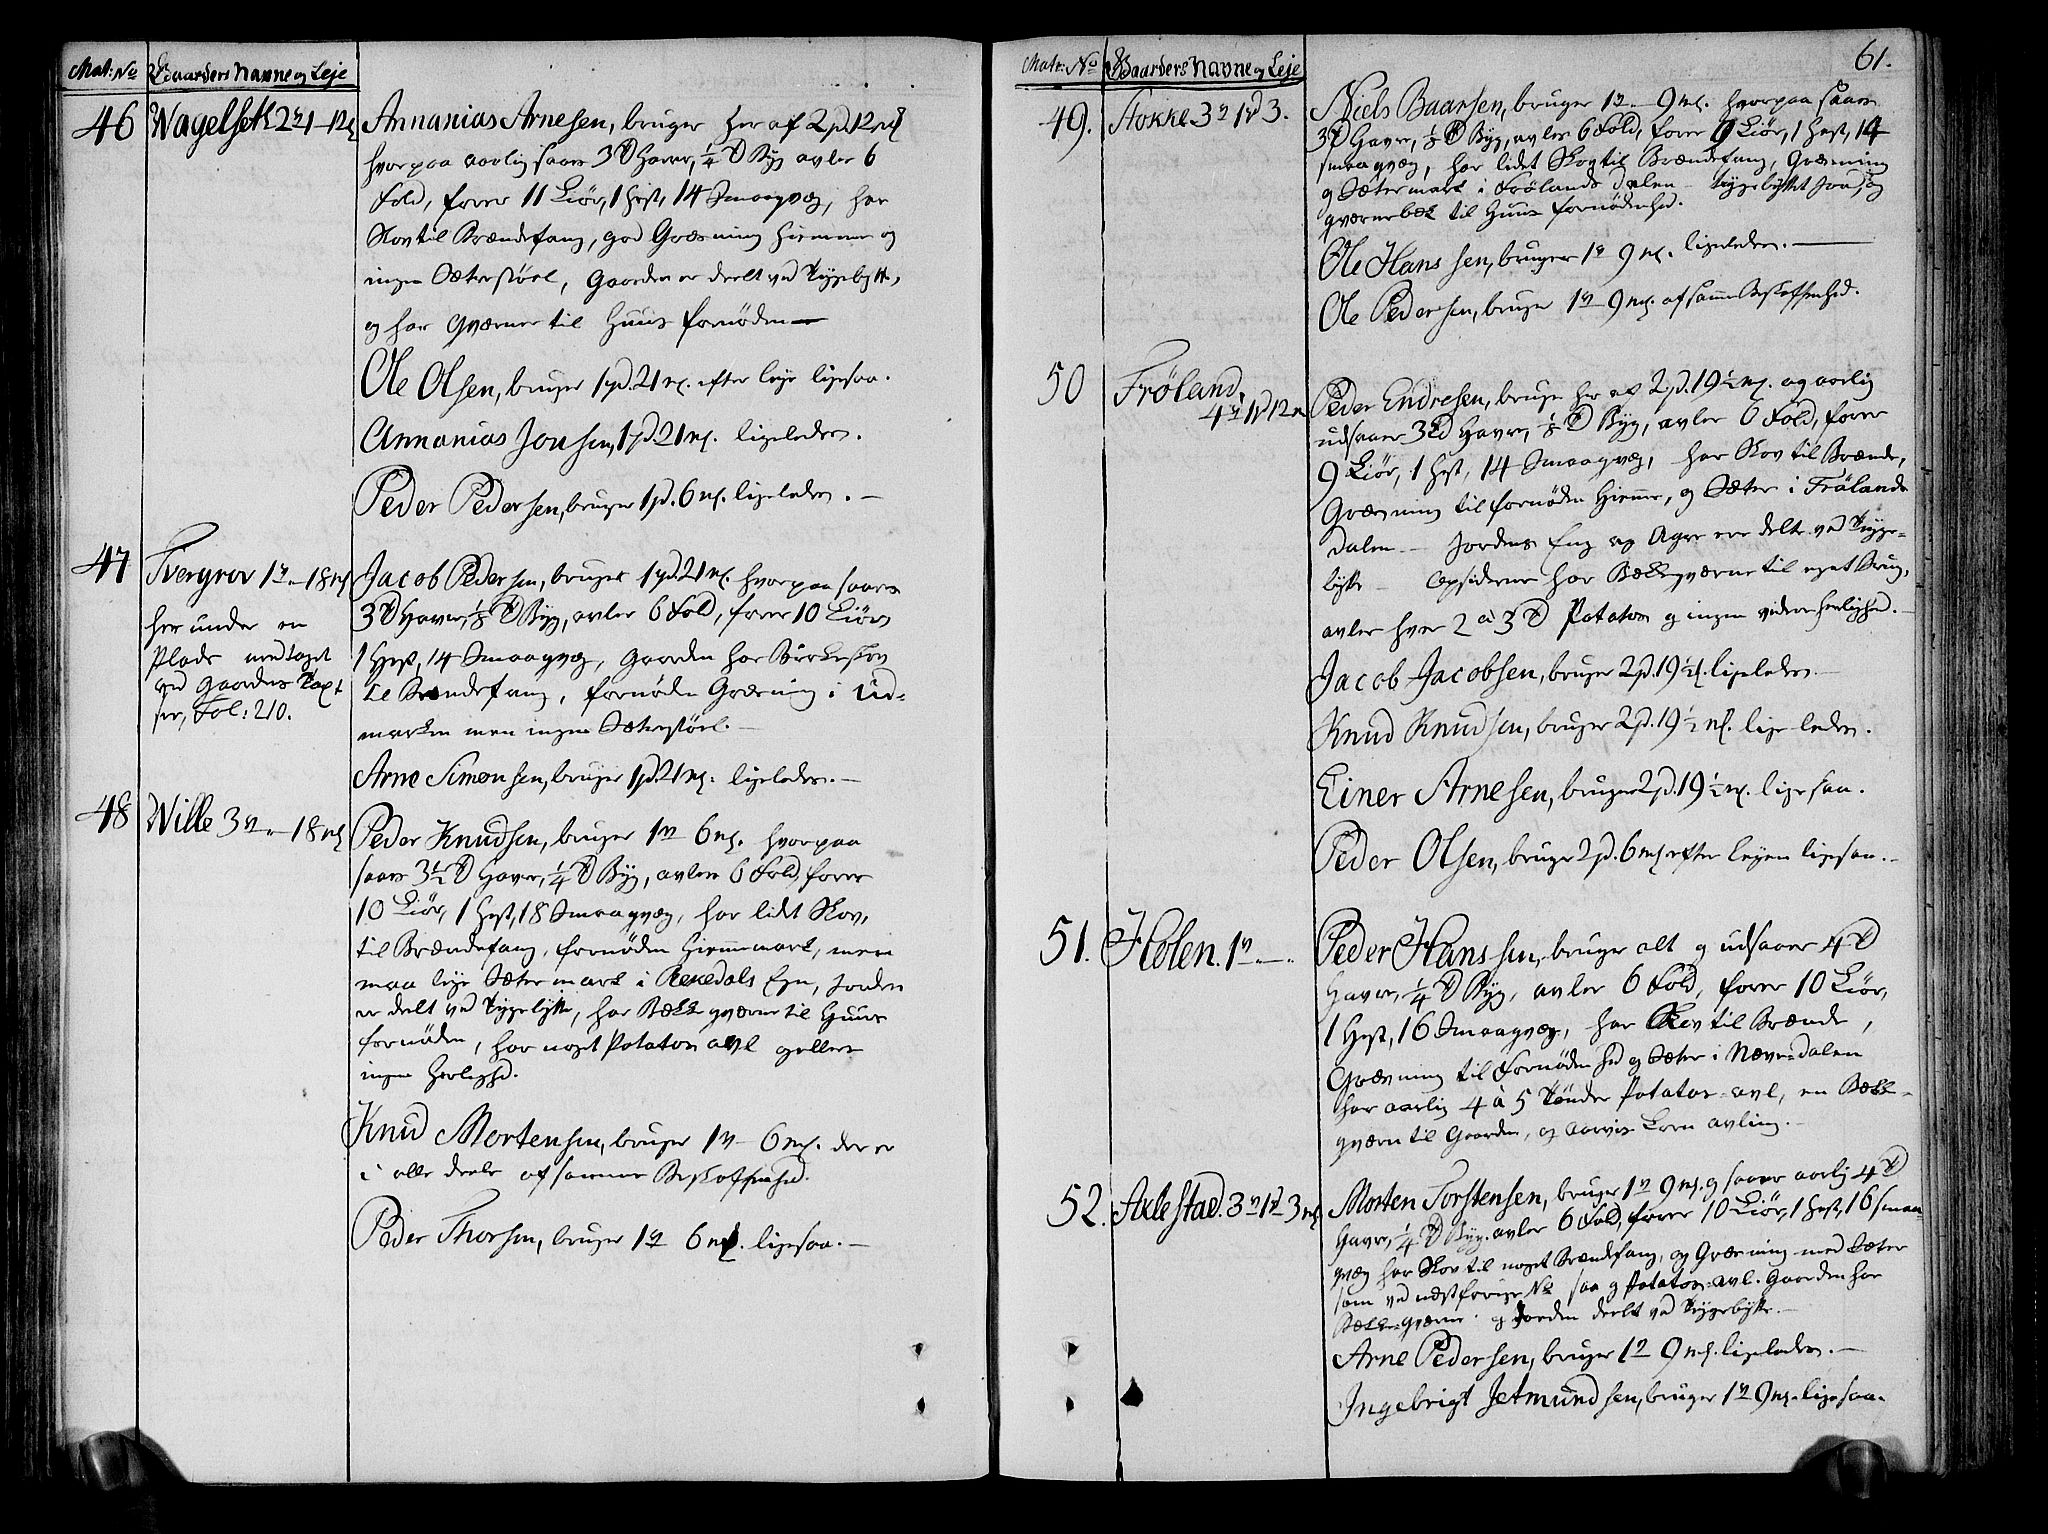 Mat: No
Gaarders Navne og Leje
46
Wagelseth 2 V 1 – 12 m
Annanias Arnesen, bruger her af 2 pd 12 m
hvorpaa aarlig saaes 3 T Havre, 1/4 T Byg avler 6
Fold, foder 11 Kiør, 1 Hest, 14 Smaaqvæg, har
Skov til Brændefang, god Græsning hiemme og
ingen Sæterstøel, Gaarden er deelt ved
og har Qværne til Huus fornøden
Ole Olsen, bruger 1 pd. 21 m. efter leje ligesaa.
Annanias Jonsen, 1 pd. 21 m. ligeledes.
Peder Pedersen, bruger 1 pd. 6 m. ligeledes. –
47
Tvergrov 1 V – 18 m
her under en
Plads
ved Gaardens Taxt
Fol: 210.
Jacob Pedersen, bruger 1 pd. 21 m. hvorpaa saaes
3 T Havre, 1/8 T Byg, avler 6 Fold, foder 10 Kiør
1 Hest, 14 Smaaqvæg, Gaarden har Birkeskov
til Brændefang, fornøden Græsning i Ud-
marken men ingen Sæterstøel. –
Arne Simonsen, bruger 1 pd. 21 m. ligeledes. –
48
Wille 3 V – 18 m
Peder Knudsen, bruger 1 V 6 m. hvorpaa
saaes 3 1/2 T Havre, 1/4 T Byg, avler 6 Fold, foder
10 Kiør, 1 Hest, 18 Smaaqvæg, har lidt Skov,
til Brændefang, fornøden Hiemmemark, men
maa leje Sætermark i Egn, Jorden
er delt ved har Bække qværne til Huus
fornøden, har noget Potatos avl
ingen Herlighed.
Knud Mortensen, bruger 1 V – 6 m. der er
i alle deele af samme Beskaffenhed.
Peder Thorsen, bruger 1 V 6 m. ligesaa. –
61.
Matr: No
Gaarders Navne og Leje
49.
Stokke 3 V 1 pd 3.
Niels Baarsen, bruger 1 V – 9 m. hvorpaa saaes
3 T Havre, 1/8 T Byg, avler 6 Fold, foder 9 Kiør, 1 Hest, 14
smaaqvæg, har lidet Skov til Brændefang, Græsning
og Sætermark i Frølands dalen – Jord og
qværnebæk til Huus fornødenhed.
Ole Hanssen, bruger 1 V 9 m. ligeledes. –
Ole Pedersen, bruger 1 V 9 m. af samme Beskaffenhed.
50
Frøland,
4 V 1 pd 12 m
Peder Endresen, bruger her af 2 pd. 19 1/2 m. og aarlig
udsaaer 3 T Havre, 1/8 T Byg, avler 6 Fold, foder
9 Kiør, 1 Hest, 14 Smaaqvæg, har Skov til Brænde,
Græsning til fornøden Hiemme, og Sæter i Frølands
dalen – Jordens Eng og Agre ere delte ved
bytte – Opsidderne har Bækkeqværne til eget Brug,
avler hver 2 à 3 T Potatos og ingen videre herlighed. –
Jacob Jacobsen, bruger 2 pd. 19 1/2 m. ligeledes. –
Knud Knudsen, bruger 2 pd. 19 1/2 m. lige ledes.
Einer Arnesen, bruger 2 pd. 19 1/2 m. ligesaa.
Peder Olsen, bruger 2 pd. 6 m efter lejen ligesaa. –
51.
Holen. 1 V – .
Peder Hanssen, bruger alt og udsaaer 4 T
Havre, 1/4 T Byg, avler 6 Fold, foder 10 Kiør,
1 Hest, 16 Smaaqvæg, har Skov til Brænde,
Græsning til Fornødenhed og Sæter i Næverdalen
har aarlig 4 à 5 Tønder Potatos-avl, en Bække-
qværn til Gaarden, og aarvis Korn avling. –
52.
Axlestad. 3 V 1 pd 3 m
Morten Torstensen, bruger 1 V 9 m. og saaer aarlig 4 T
Havre, 1/4 T Byg. avler 6 Fold, foder 10 Kiør, 1 Hest, 16 smaa-
qvæg har Skov til noget Brændefang, og Græsning med Sæter
som ved næstforrige No saa og Potatos-avl. Gaarden har
Bække-qværne og Jorden deelt ved
Arne Pedersen, bruger 1 V 9 m. ligeledes. –
Ingebrigt Jetmundsen, bruger 1 V 9 m. ligesaa.